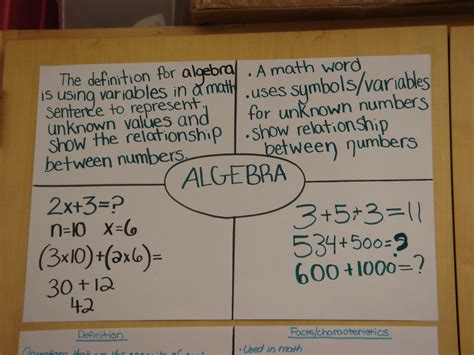 The definition for algebra
is using variables in a math
sentence to represent
unknown values and
show the relationship
between numbers.
· A math word
· uses symbols/variables
for unknown numbers
· show relationship
between numbers
ALGEBRA
2x+3=?
n=10 x=6
(3x10)+(2x6)=
30 + 12
42
3+5+3=11
534+500=?
600+1000=?
Definition
Facts/characteristics
· Used in math